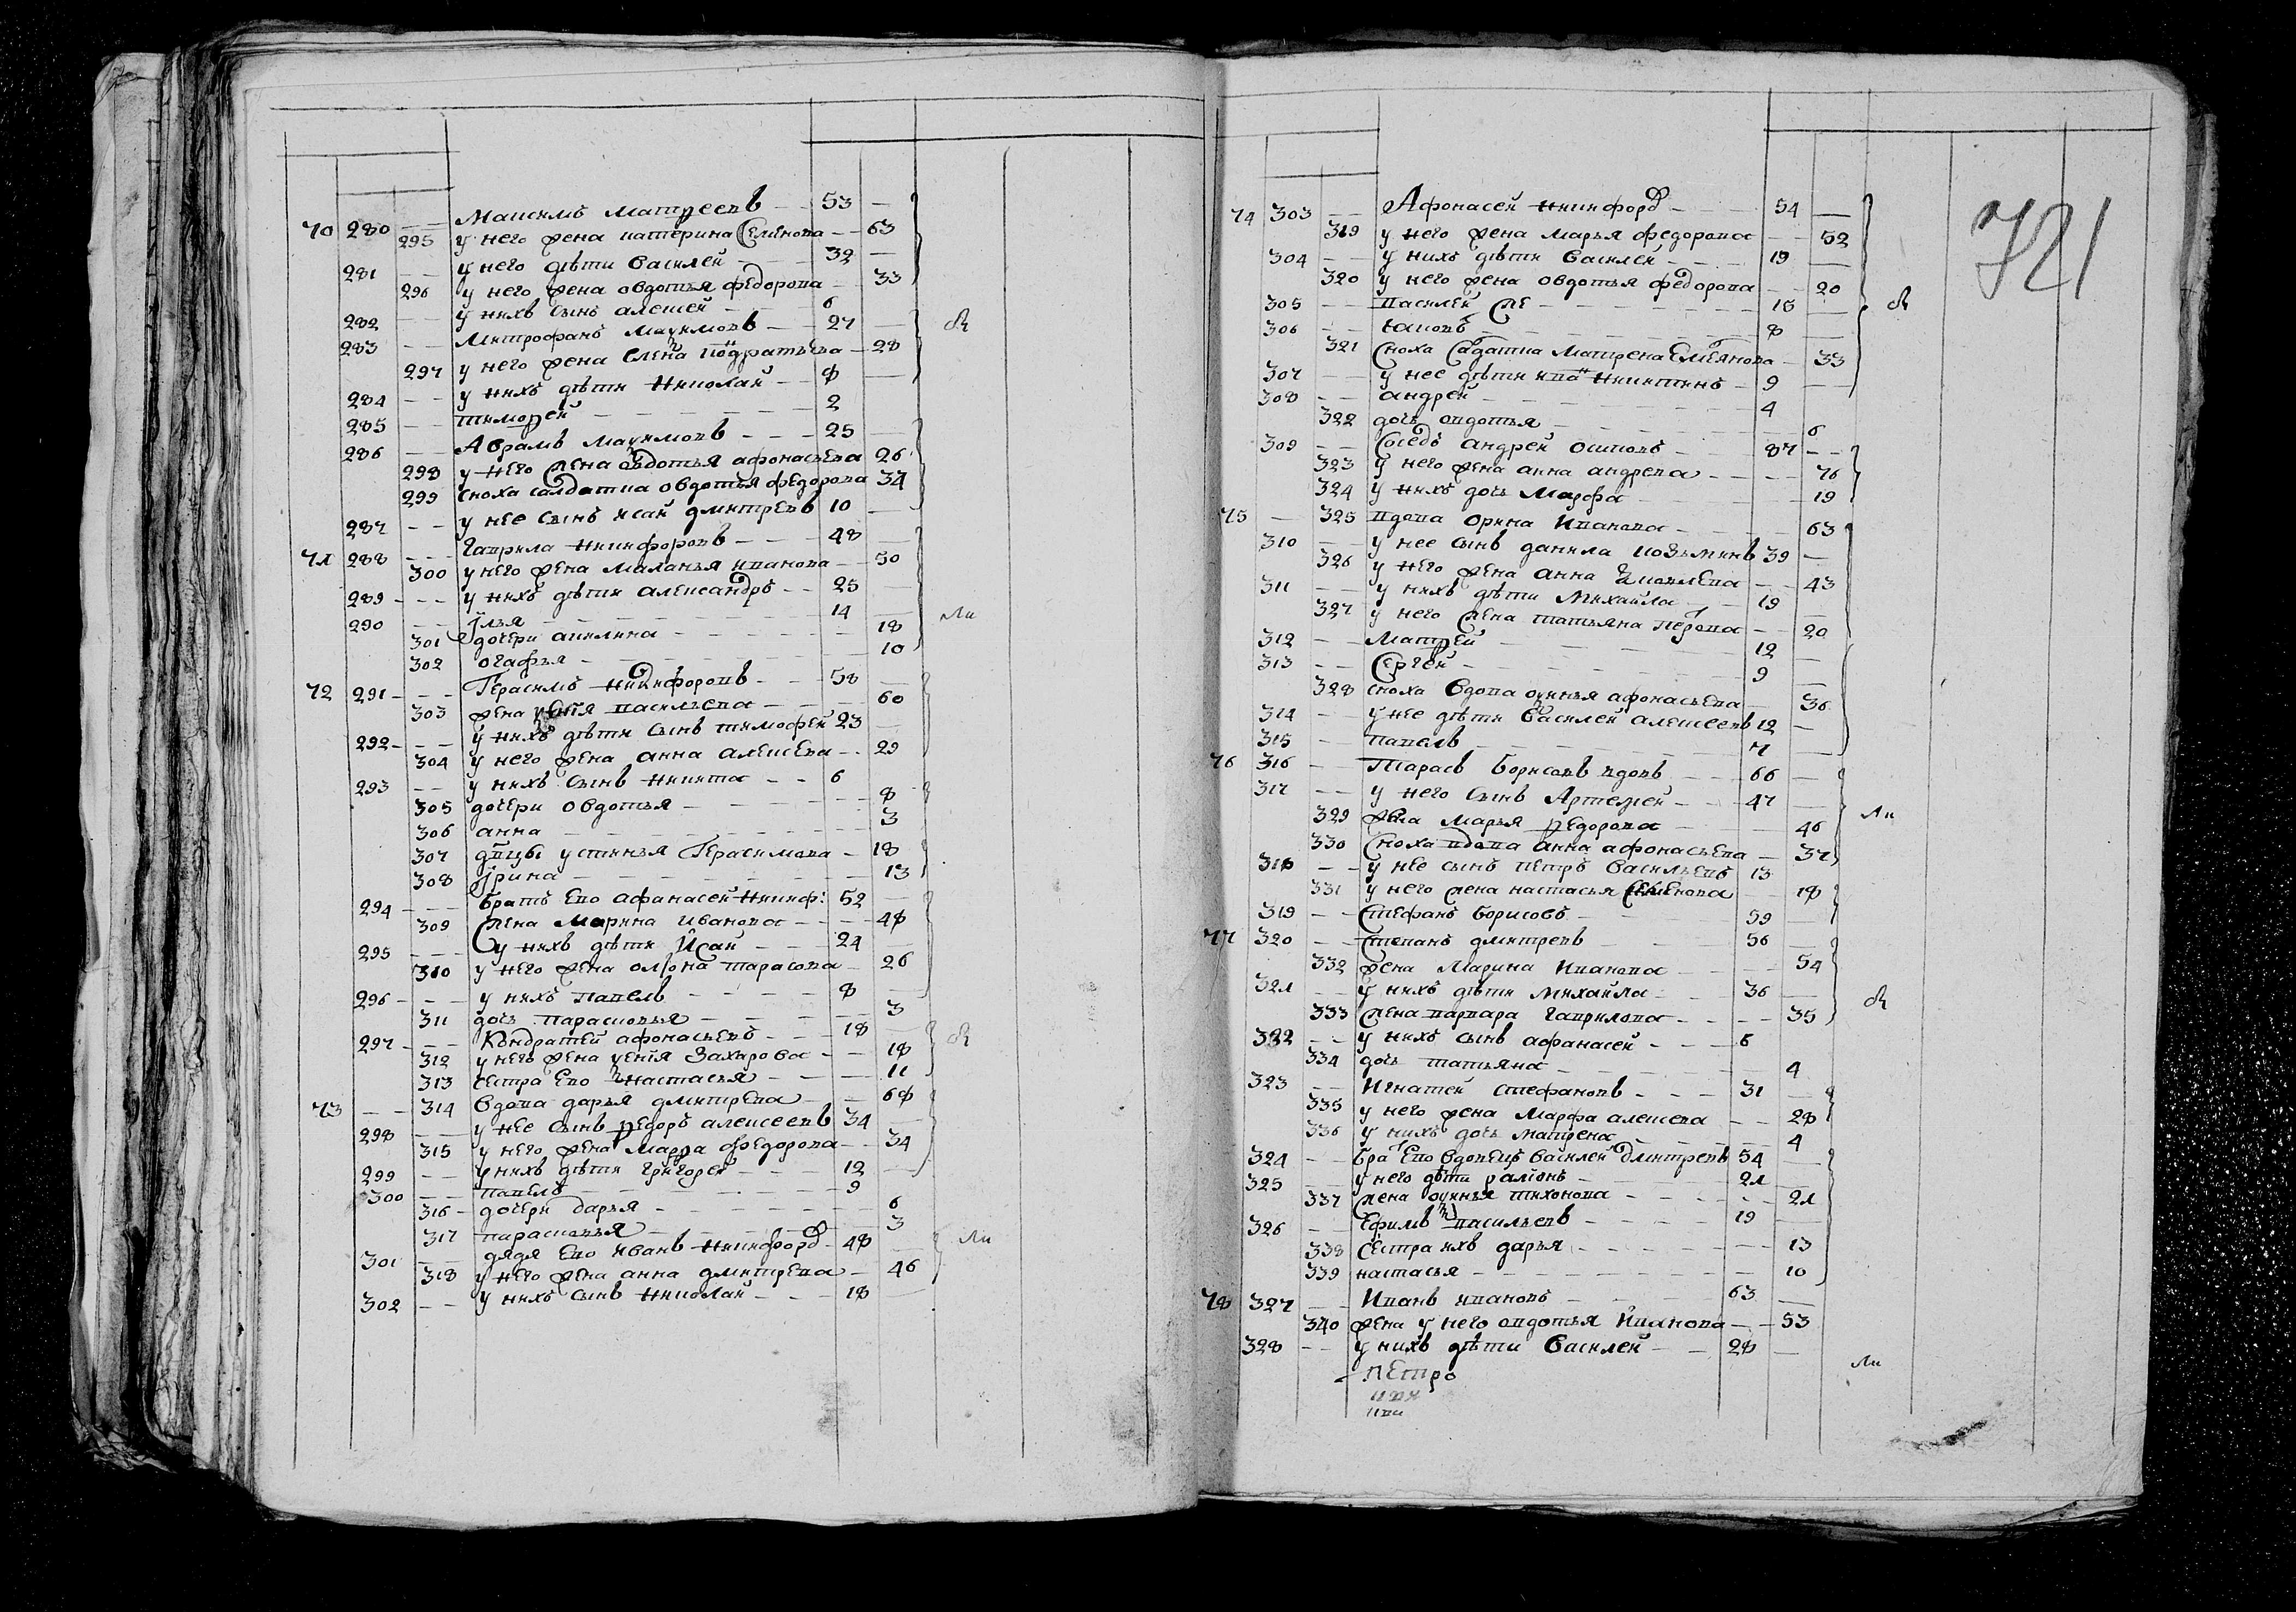 70 280 — Максимъ Матвеевъ — 53 —
295 у него жена катерина Семенова — 63
281 — у него дѣти Василей — 32 —
296 у него жена овдотья федорова — 33
282 — у нихъ сынъ алексей — 6
283 — Митрофанъ Маѯимовъ — 27 —
297 у него жена Елена кодратьева — 28
284 — у нихъ дѣти Николай — 8 —
285 — тимофей — 2
286 — Абрамъ Маѯимовъ — 25 —
298 у него жена овдотья афонасьева 26
299 сноха салдатка овдотья федорова 34
287 — у нее сынъ исай дмитревъ 10 —
71 288 — Гаврила Никифоровъ — 48 —
300 у него жена Маланья иванова — 50
289 — у нихъ дѣти александръ — 25 —
290 — Илья — 14 —
301 дочери акилина — 18
302 огафья — 10
72 291 — Герасимъ Никифоровъ — 58 —
303 жена васильева — 60
292 — у нихъ дѣти сынъ тимофей 23 —
304 у него жена анна алексева — 29
293 — у нихъ сынъ никита — 6
305 дочери овдотья — 8
306 анна — 3
307 дѣвцы устинья Герасимова — 18
308 Ирина — 13
294 — братъ Ево афанасей Никиф: 52 —
309 жена Марина иванова — 48
295 — у нихъ дѣти Исай — 24 —
310 у него жена олѳна тарасова — 26
296 — у нихъ павелъ — 8 —
311 дочь парасковья — 3
297 — Кондратей афонасьевъ — 18 —
312 у него жена Захарова — 18
313 сестра Ево настасья — 11
73 — 314 вдова дарья дмитрева — 68
298 — у нее сынъ федоръ алексеевъ 34 —
315 у него жена Марфа федорова — 34
299 — у нихъ дѣти Григорей — 12 —
300 — павелъ — 9
316 — дочери дарья — 6
317 парасковья — 3
301 — дядя Ево иванъ Никифоро 48 —
318 у него жена анна дмитрева — 46
302 — у нихъ сынъ николай — 18 —
721
74 303 — Афонасей Никифоро — 54 —
319 у него жена марья федорова — 52
304 — у нихъ дѣти Василей — 19 —
320 у него жена овдотья федорова — 20
305 — василей же — 15 —
306 — яковъ — 8 —
321 сноха садатка матрена Емеянова — 33
307 — у нее дѣти ива никитинъ — 9 —
308 — андрей — 4
322 дочь овдотья — 6
309 — соседъ андрей осиповъ — 87 —
323 у него жена анна андрева — 76
324 у нихъ дочь марфа — 19
75 — 325 вдова орина иванова — 63
310 — у нее сынъ данила козьминъ 39 —
326 у него жена анна — 43
311 — у нихъ дѣти михайла — 19 —
327 у него жена татьяна перова — 20
312 — матвей — 12 —
313 — Сергей — 9 —
328 сноха вдова аѯинья афонасьева — 36
314 — у нее дѣти василей алексеевъ 12 —
315 — павелъ — 7 —
76 316 — тарасъ борисовъ вдовъ — 66 —
317 — у него сынъ Артемей — 47 —
329 жена марья федорова — 46
330 сноха вдова анна афонасьева — 37
318 — у нее сынъ петръ васильевъ 13
331 у него жена настасья семенова — 18
319 — Стефанъ борисовъ — 59 —
77 320 — Степанъ дмитревъ — 56 —
332 жена марина иванова — 54
321 — у нихъ дѣти михайла — 36 —
333 жена варвара гаврилова — 35
322 — у нихъ сынъ афанасей — 6
334 дочь татьяна — 4
323 — Игнатей стефановъ — 31 —
335 у него жена марфа алексева — 28
336 у нихъ дочь матрена — 4
324 — бра Ево вдовецъ василей дмитревъ 54 —
325 — у него дѣти — 21 —
337 жена аѯинья тихонова — 21
326 — Ефимъ васильевъ — 19 —
338 сестра ихъ дарья — 13
339 настасья — 10
78 327 — Иванъ ивановъ — 63 —
340 жена у него овдотья иванова — 53
328 — у нихъ дѣти василей — 28 —
петро